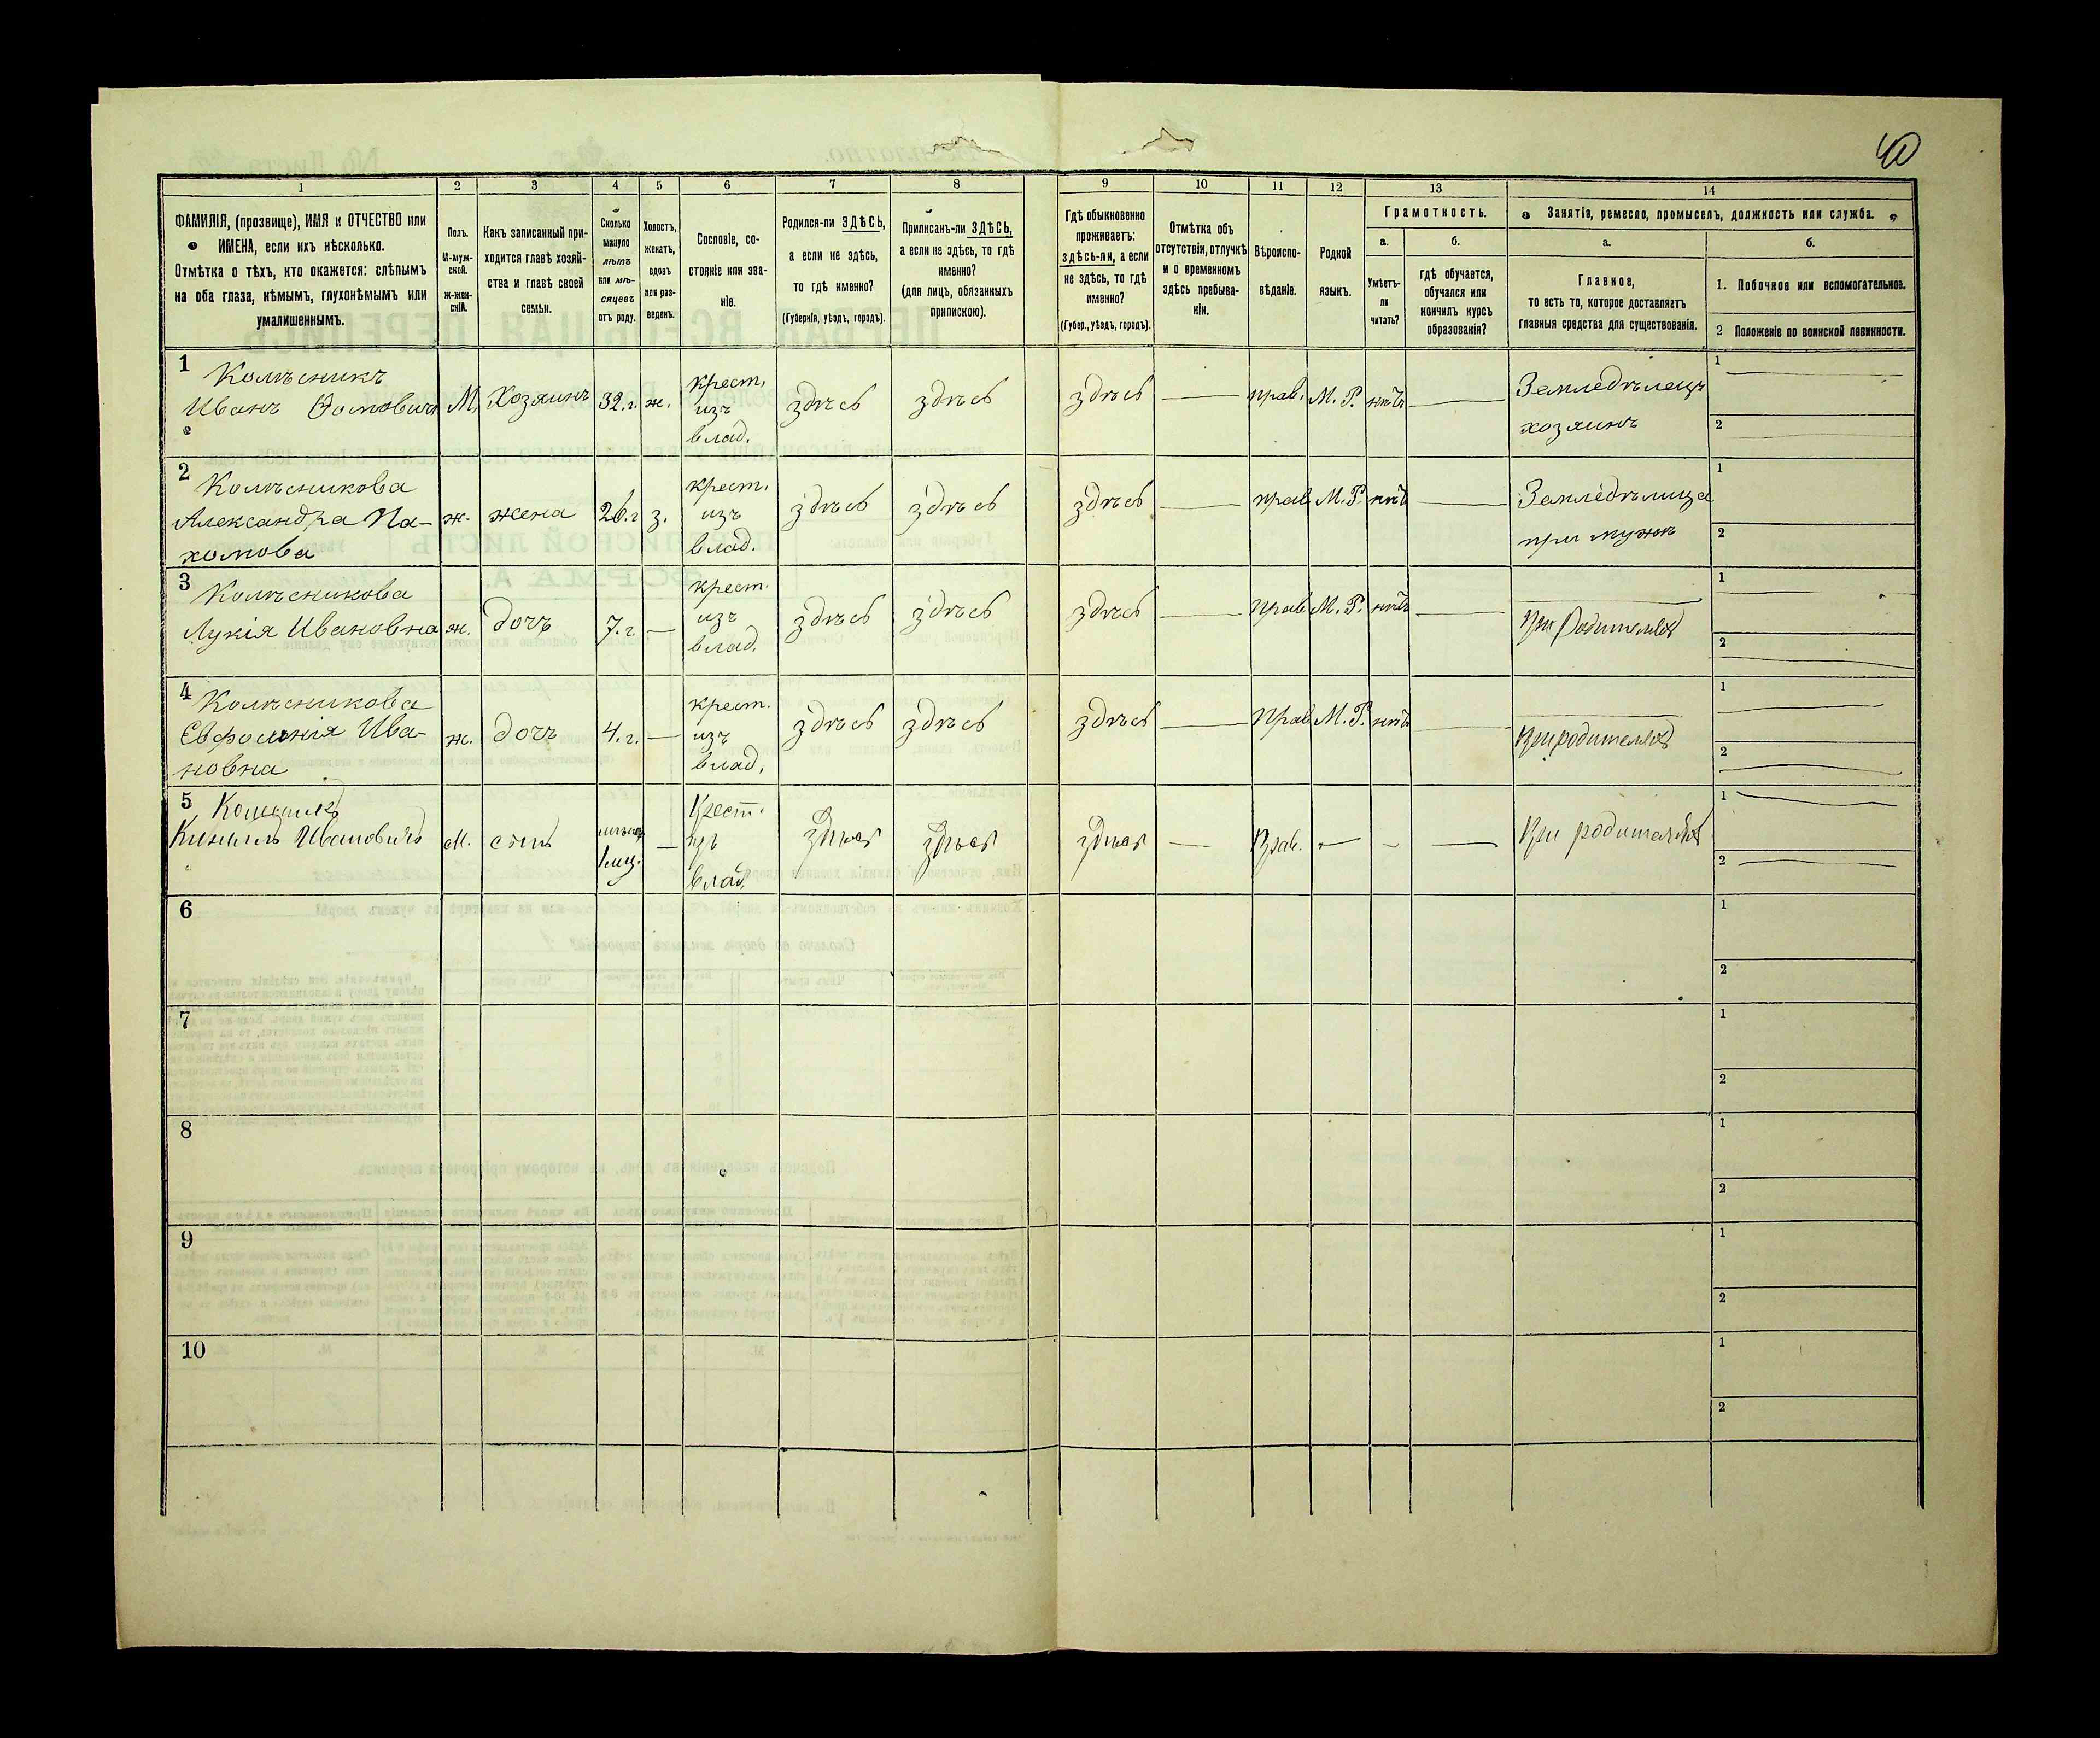 40
1 2 3 4 5 6 7 8 9 10 11 12 13 14
ФАМИЛІЯ, (прозвище), ИМЯ и ОТЧЕСТВО или
ИМЕНА, если ихъ нѣсколько.
Отмѣтка о тѣхъ, кто окажется: слѣпымъ
на оба глаза, нѣмымъ, глухонѣмымъ или
умалишеннымъ.
Полъ.
М-муж-
ской.
ж-жен-
скій.
Какъ записанный при-
ходится главѣ хозяй-
ства и главѣ своей
семьи.
Сколько
минуло
лѣтъ
или мѣ-
сяцевъ
отъ роду.
Холостъ,
женатъ,
вдовъ
или раз-
веденъ.
Сословіе, со-
стояніе или зва-
ніе.
Родился-ли ЗДѢСЬ,
а если не здѣсь,
то гдѣ именно?
(Губернія, уѣздъ, городъ).
Приписанъ-ли ЗДѢСЬ,
а если не здѣсь, то гдѣ
именно?
(для лицъ, обязанныхъ
припискою).
Гдѣ обыкновенно
проживаетъ:
здѣсь-ли, а если
не здѣсь, то гдѣ
именно?
(Губер., уѣздъ, городъ).
Отмѣтка объ
отсутствіи, отлучкѣ
и о временномъ
здѣсь пребыва-
ніи.
Вѣроиспо-
вѣданіе.
Родной
языкъ.
Грамотность.
а.
Умѣетъ-
ли
читать?
б.
гдѣ обучается,
обучался или
кончилъ курсъ
образованія?
Занятія, ремесло, промыселъ, должность или служба.
а.
Главное,
то есть то, которое доставляетъ
главныя средства для существованія.
б.
1. Побочное или вспомогательное.
2 Положеніе по воинской повинности.
1
Колѣсникъ
Иванъ Ѳомовичъ
М. Хозяинъ 32.г. ж.
крест.
изъ
влад.
здѣсь здѣсь здѣсь — прав. М. Р. нѣтъ —
Земледѣлецъ
хозяинъ
1 —
2 —
2
Колѣсникова
Александра Па-
хомова
ж. жена 26.г з.
крест.
изъ
влад.
здѣсь здѣсь здѣсь — прав М. Р. нѣтъ —
Земледѣлица
при мужѣ
1
2
3
Колѣсникова
Лукія Ивановна
ж. дочъ 7.г —
крест.
изъ
влад.
здѣсь здѣсь здѣсь — прав М. Р. нѣтъ —
При родителяхъ
1 —
2 —
4
Колѣсникова
Ива-
новна
ж. дочъ 4.г. —
крест.
изъ
влад.
здѣсь здѣсь здѣсь — прав М. Р. нѣтъ —
При родителяхъ
1 —
2 —
5
Ивановичъ
М. сынъ
1 мц. —
Крест.
изъ
влад.
здѣсь здѣсь здѣсь — Прав. — - —
При родителяхъ
1 —
2 —
6
1
2
7
1
2
8
1
2
9
1
2
10
1
2